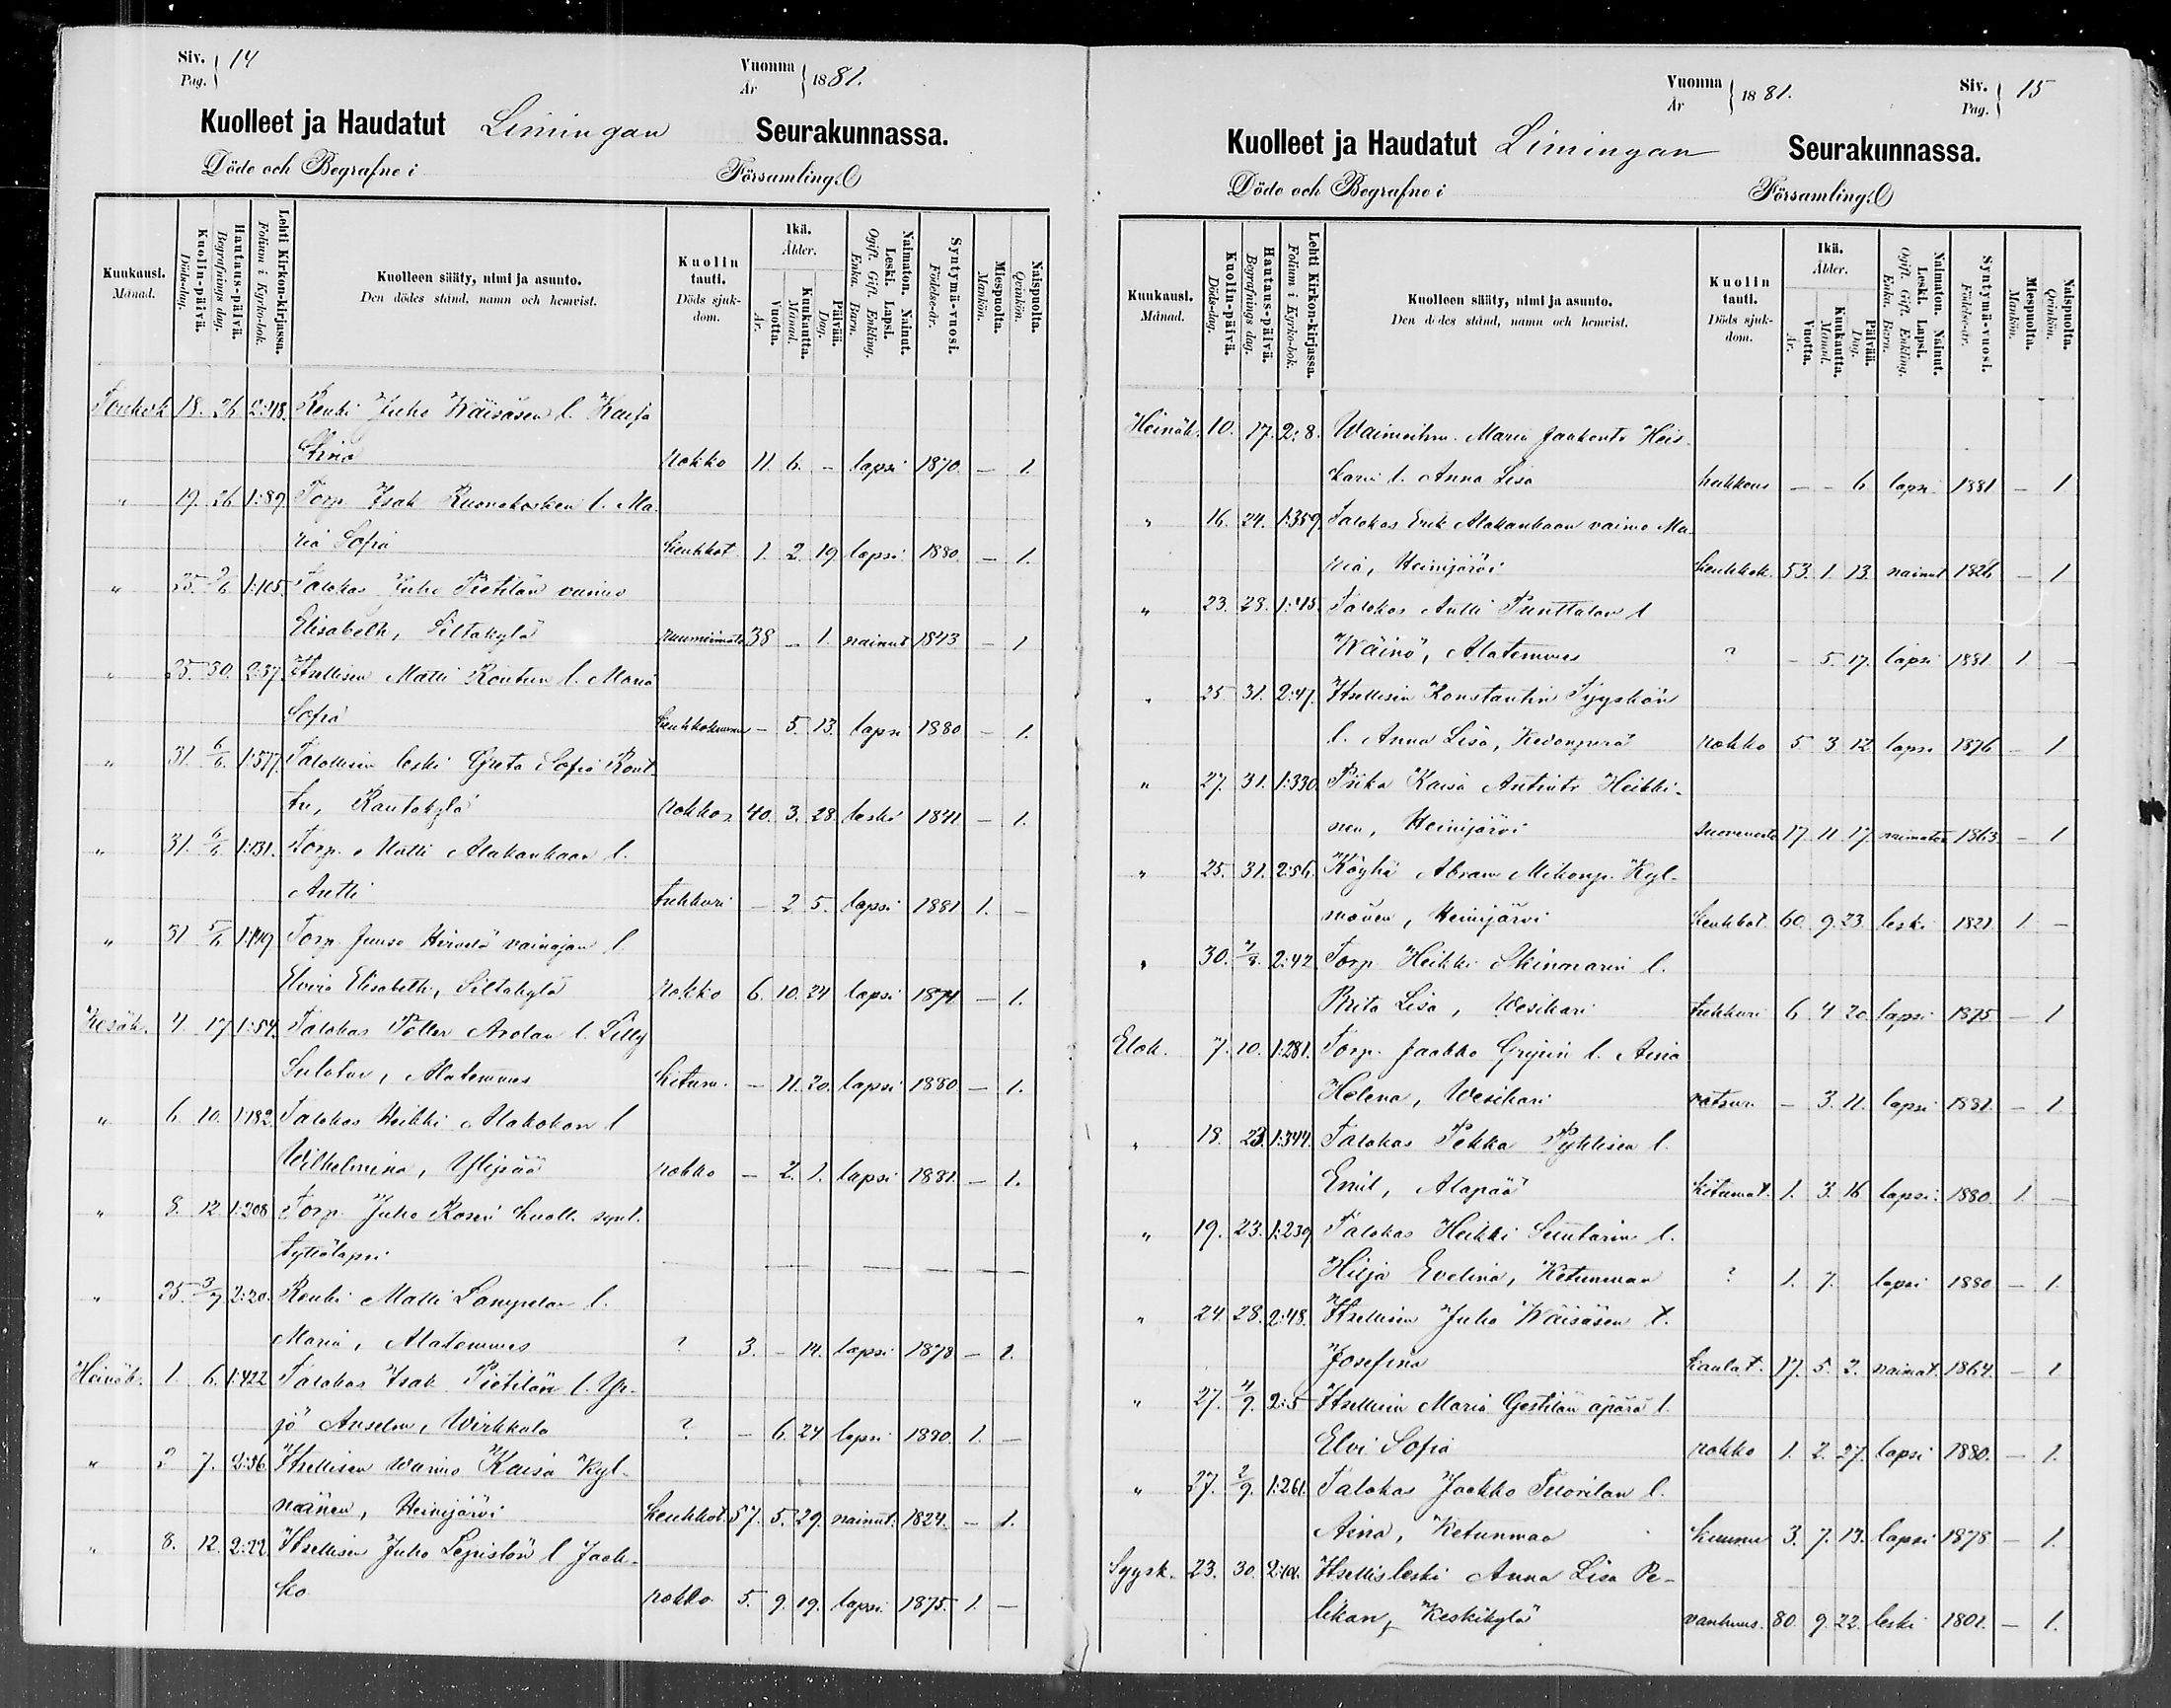 Siv. Pag. 14
Vuonna År 1881.
Kuolleet ja Haudatut Limingan Seurakunnassa.
Döde och Begrafne i Församling.
Kuukausi. Månad.
Kuolin-päivä. Döds-dag.
Hautaus-päivä. Begrafnings dag.
Lehti Kirkon-kirjassa. Folium i Kyrko-bok.
Kuolleen sääty, nimi ja asunto. Den dödes stånd, namn och hemvist.
Kuolin tauti. Döds sjukdom.
Ikä. Ålder.
Vuotta. År.
Kuukautta. Månad.
Päivää. Dag.
Naimaton. Nainut. Leski. Lapsi. Ogift. Gift. Enkling. Enka. Barn.
Syntymä-vuosi. Födelse-år.
Miespuolta. Mankön.
Naispuolta. Qvinkön.
Toukok 18. 26 2:48. Renki Juho Wäisäsen l. Kaisa
Stina rokko 11. 6. - lapsi 1870. - 1.
" 19. 26 1:89. Torp. Isak Ruonakosken l. Ma
ria Sofia keuhkot. 1. 2. 19. lapsi 1880. - 1.
" 25. 1:105. Talokas Juho Pietilän vaimo
Elisabeth, Siltakylä 38 - 1. nainut 1843 - 1
" 25. 30. 2:37. Itsellisen Matti Rontun l. Maria
Sofia - 5. 13. lapsi 1880 - 1.
" 31. 6/6. 1:577. Talollisen leski Greta Sofia Ront
tu, Rantakylä rokko 40. 3. 28. leski 1841 - 1.
" 31. 6/6 1:131. Torp. Matti Alakankaan l.
Antti tukkuri - 2 5. lapsi 1881 1. -
" 31 5/6 1:149 Torp. Juuso Hirvelä vainajan l.
Elvira Elisabeth, Siltakylä rokko 6. 10. 24 lapsi 1874. - 1.
Kesäk. 4. 17 1:54. Talokas Petter Arolan l. Lilly
Sulatar, Alatemmes kitum. - 11. 20. lapsi 1880 - 1.
" 6. 10. 1:182 Talokas Heikki Alakokon l
Wilhelmina, Ylipää rokko - 2. 1. lapsi 1881. - 1.
" 8. 12 1:208 Torp. Juho Rosen kuoll. synt.
tyttölapsi - - - - -
" 25. 3/7 2:20. Renki Matti Lampelan l.
Maria, Alatemmes ? 3. - 14. lapsi 1878 - 1.
Heinäk. 1 6. 1:422 Talokas Isak Pietilän l. Yr-
jö Anselm, Wirkkala ? - 6. 24 lapsi 1880. 1. -
" 2 7. 2:36 Itsellisen waimo Kaisa Kyl-
mänen, Heinijärvi keuhkot. 57. 5. 29. nainut. 1824. - 1.
" 8. 12. 2:22. Itsellisen Juho Lepistön l. Jaak-
ko rokko 5. 9. 19. lapsi 1875. 1. -
Vuonna År 1881.
Siv. Pag. 15
Kuolleet ja Haudatut Limingan Seurakunnassa.
Döde och Begrafne i Församling.
Kuukausi. Månad.
Kuolin-päivä. Döds-dag.
Hautaus-päivä. Begrafnings dag.
Lehti Kirkon-kirjassa. Folium i Kyrko-bok.
Kuolleen sääty, nimi ja asunto. Den dödes stånd, namn och hemvist.
Kuolin tauti. Döds sjukdom.
Ikä. Ålder.
Vuotta. År.
Kuukautta. Månad.
Päivää. Dag.
Naimaton. Nainut. Leski. Lapsi. Ogift. Gift. Enkling. Enka. Barn.
Syntymä-vuosi. Födelse-år.
Miespuolta. Mankön.
Naispuolta. Qvinkön.
Heinäk. 10. 17. 2:8. Waimoihm. Maria Jaakontr Heis
karin l. Anna Lisa - - 6 lapsi 1881 - 1
" 16. 24. 1:359. Talokas Erik Alakankaan vaimo Ma
ria, Heinijärvi keuhkok. 53. 1. 13. nainut 1826 - 1
" 23. 29. 1:45. Talokas Antti Punttalan l
Wäinö, Alatemmes ? - 5 17. lapsi 1881 1 -
" 25 31. 2:47. Itsellisen Konstantin Tyyskän
l. Anna Lisa, Kedonperä rokko 5 3 12 lapsi 1876 - 1
" 27. 31. 1:330. Piika Kaisa Antintr Heikki-
nen, Heinijärvi 17. 11. 17. naimaton 1863 - 1
" 25. 31. 2:56. Köyhä Abram Mikonp. Kyl-
mänen, Heinijärvi keuhkot. 60. 9. 23. leski 1821. 1. -
" 30. 2:42 Torp. Heikki Skinnarin l.
Brita Lisa, Wesikari tukkuri 6 4 20. lapsi 1875 - 1
Elok. 7. 10. 1:281. Torp. Jaakko Gripin l. Aina
Helena, Wesikari - 3. 11. lapsi 1881. - 1
" 18. 23. 1:344. Talokas Pekka Pyhlisen l.
Emil, Alapää kitumat. 1. 3. 16 lapsi. 1880. 1. -
" 19. 23. 1:239 Talokas Heikki Suutarin l.
Hilja Evelina, Ketunmaa ? 1. 7. lapsi 1880 - 1.
" 24. 28. 2:48. Itsellisen Juho Wäisäsen t.
Josefina kaulat. 17. 5. 2. naimat. 1864. - 1
" 27. 4/9. 2:5 Itsellisen Maria Gestilän äpärä l.
Elvi Sofia rokko 1. 2. 27. lapsi 1880. - 1.
" 27. 2/9. 1:261. Talokas Jaakko Tuorilan l.
Aina, Ketunmaa kuume 3. 7. 13. lapsi 1878 - 1.
Syysk. 23. 30. Itsellisleski Anna Lisa Pe-
likan, Keskikylä vanhuus. 80. 9. 22. leski 1801. - 1.